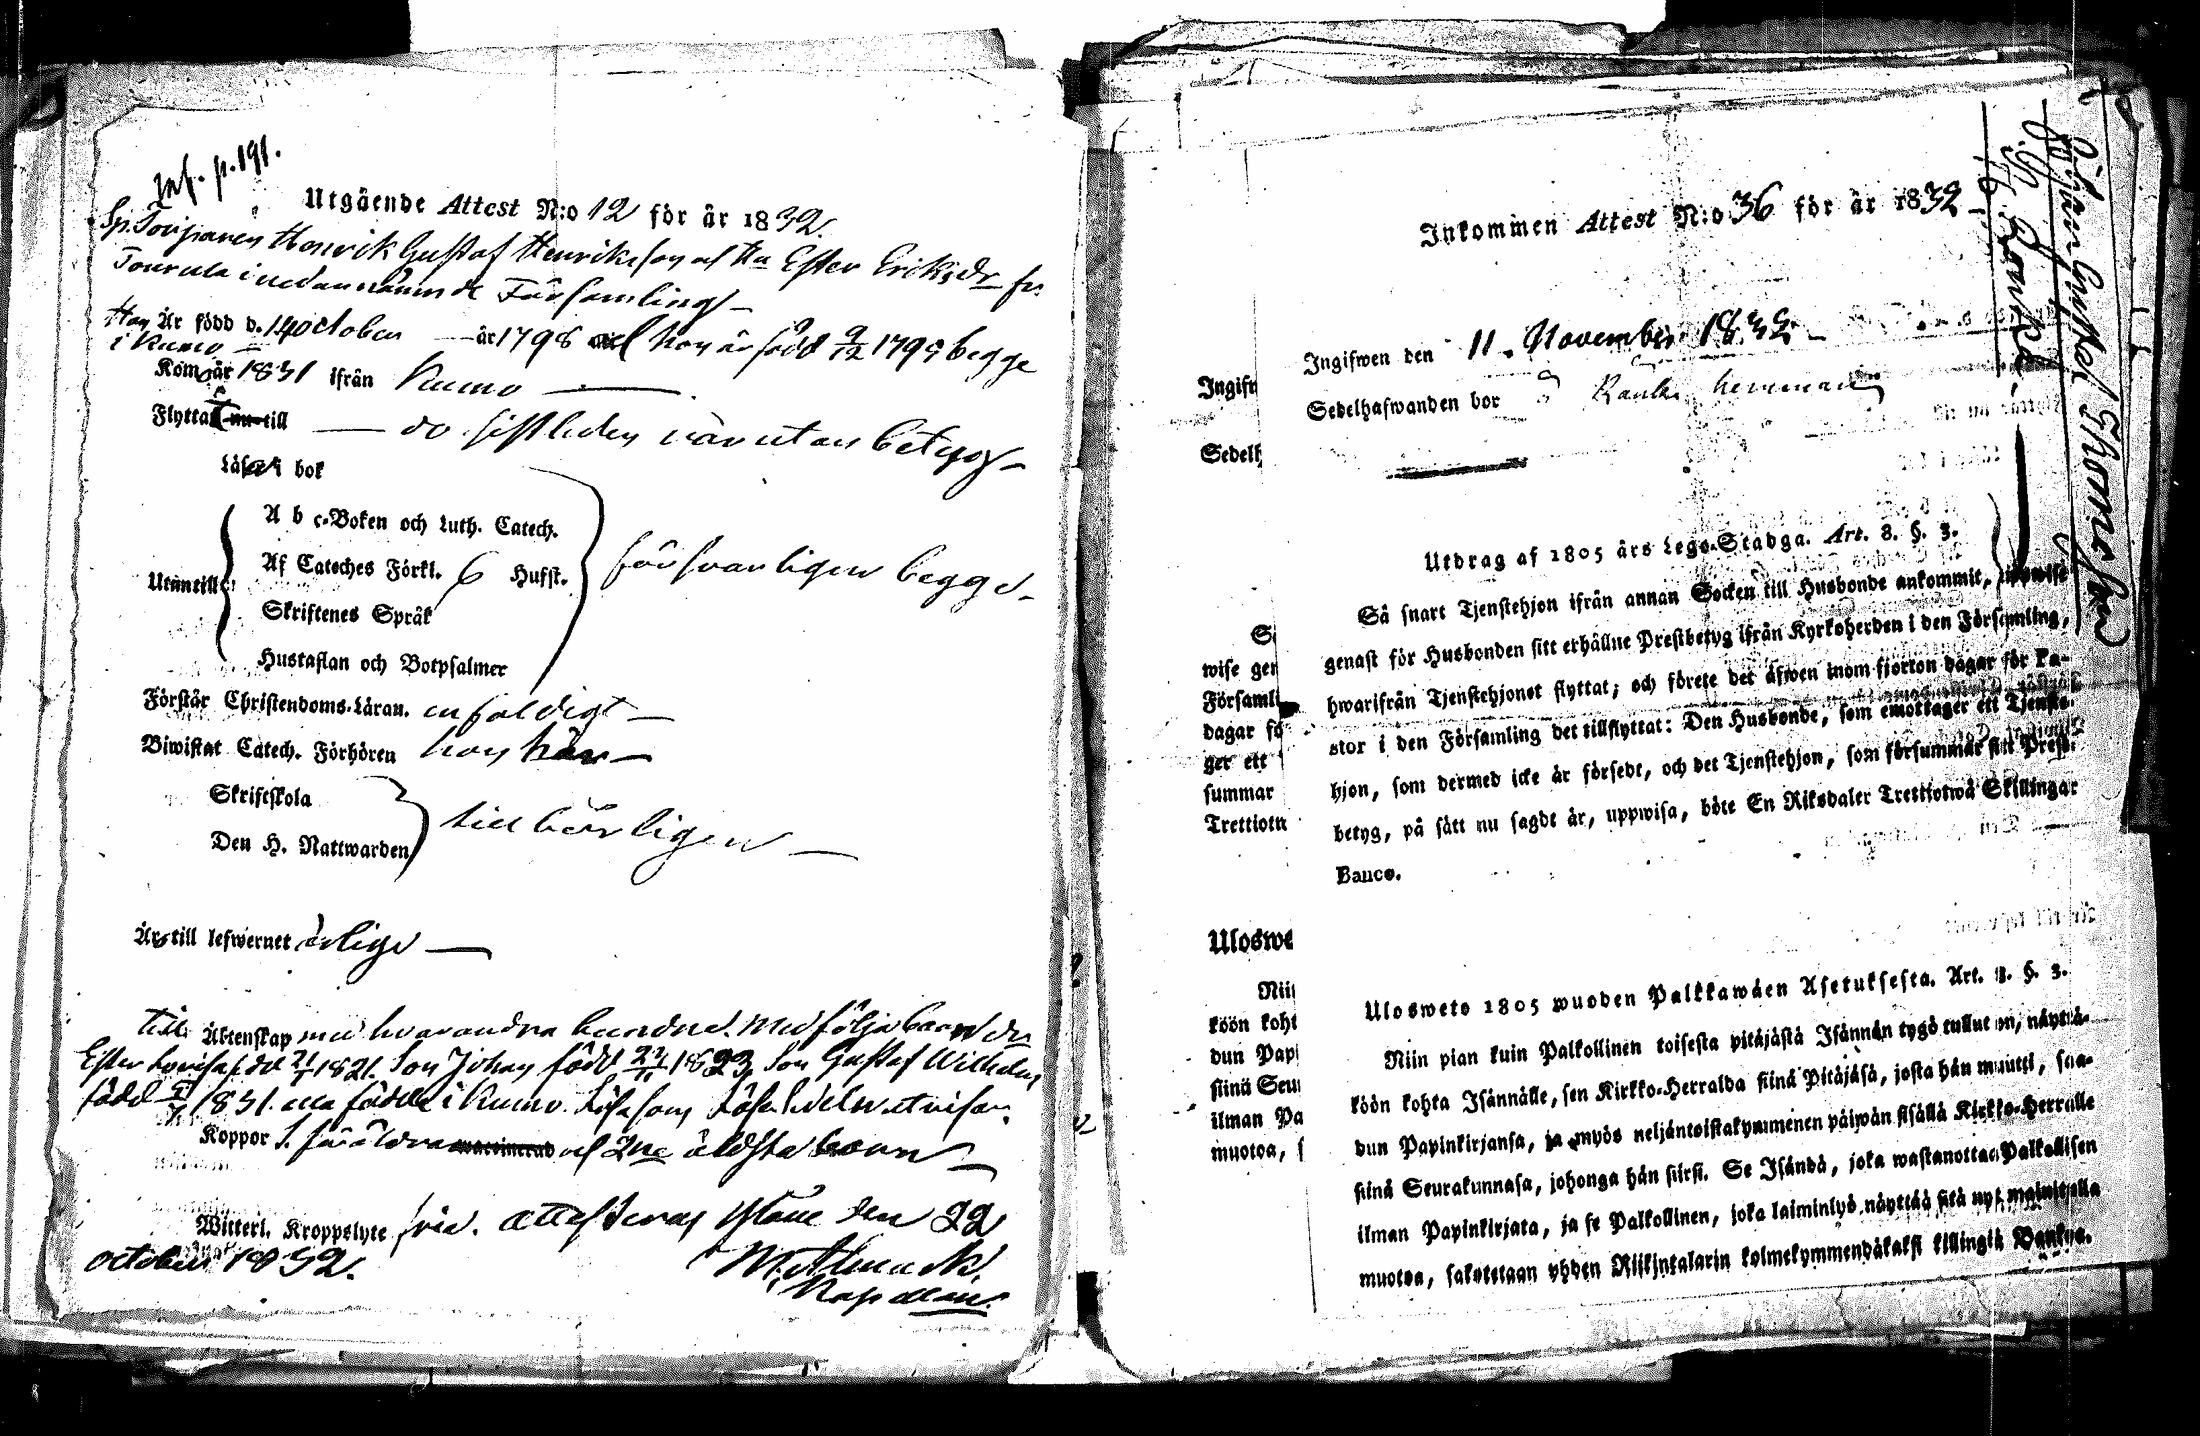 Inf. p. 191.
Utgående Attest N:o 12 för år 1832.
Sp. Torparen Henrik Gustaf Henriksson och Hu Ester Eriksdr fr.
Tourula i nedannämnde Församling
Han Är född d. 14 October år 1798 och hon är född 9/12 1799 begge
i Kumo
Kom år 1831 ifrån Kumo
Flytta till do sistleden vår utan betyg
Läsa i bok
A b c-Boken och Luth. Catech.
Af Cateches Förkl. 6 Hufst.
Utantill
försvarligen begge
Skriftenes Språk
Hustaflan och Botpsalmer
Förstår Christendoms-Läran. enfaldigt
Biwistat Catech. Förhören hos här
Skriftskola
tillbörligen
Den H. Nattwarden
Är till lefwernet ärlige
Till Äktenskap med hvarandra bundne. Medfölja barn dr
Ester Lovisa f. d. 21/1 1821. Son Johan född 1823, Son Gustaf Wilhelm
född 1831. alla födde i Kumo.
Koppor föräldrar och 2ne äldsta barn
Witterl. Kroppslyte fria. Attesteras den 22
October 1832.
Kapellan.
Inkommen Attest N:o 36 för år 1832
Ingifwen den 11. November 1832
Sedelhafwanden bor å hemman
Utdrag af 1805 års Lego-Stadga. Art. 8. §. 3.
Så snart Tjenstehjon ifrån annan Socken till Husbonde ankommit, uppwise
genast för Husbonden sitt erhållne Prestbetyg ifrån Kyrkoherden i den Församling,
hwarifrån Tjenstehjonet flyttat; och förete det äfwen inom fjorton dagar för Pa-
stor i den Församling det tillflyttat: Den Husbonde, som emottager ett Tjenste-
hjon, som dermed icke är försedt, och det Tjenstehjon, som försummar sitt Prest-
betyg, på sätt nu sagdt är, uppwisa, böte En Riksdaler Trettiotwå Skillingar
Banco.
Ulosweto 1805 wuoden Palkkawäen Asetuksesta. Art. 8. §. 3.
Niin pian kuin Palkollinen toisesta pitäjästä Isännän tygö tullut on, näyttä-
köön kohta Isännälle, sen Kirkko-Herralda siinä Pitäjäsä, josta hän muutti, saa-
dun Papinkirjansa, ja myös neljäntoistakymmenen päiwän sisällä Kirkko-Herralle
siinä Seurakunnasa, johonga hän siirsi. Se Isändä, joka wastanottaa Palkollisen
ilman Papinkirjata, ja se Palkollinen, joka laiminlyö näyttää sitä nyt mainitulla
muotoa, sakotetaan yhden Riikintalarin kolmekymmendäkaksi killingiä Bankoa.
Ingifw
Sedelh
wise gen
Församli
dagar fö
ger ett
summar
Trettiotw
Uloswe
Niin
köön koht
dun Papi
siinä Seu
ilman Pa
muotoa, s